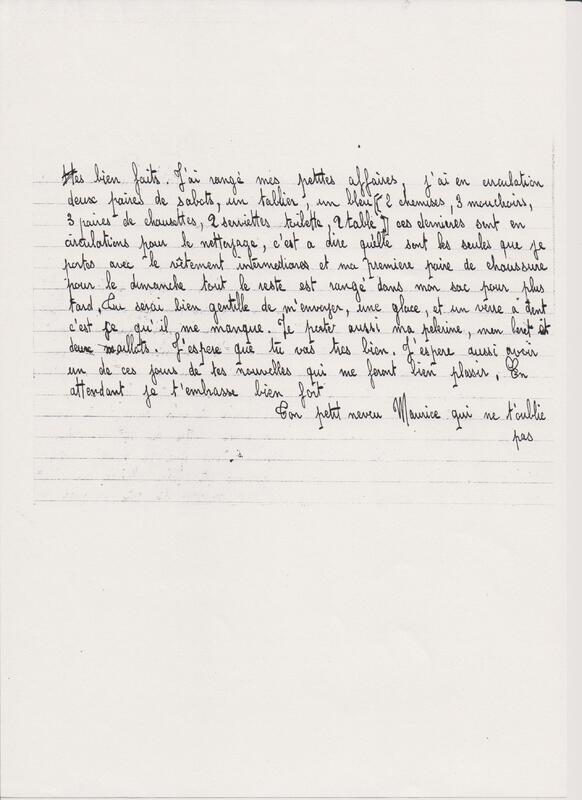 tres bien faits. J'ai rangé mes petites affaires, j'ai en circulation
deux paires de sabots, un tablier, un bleu, [2 chemises, 3 mouchoirs,
3 paires de chausettes, 2 serviettes toilette, 2 table] ces dernieres sont en
circulations pour le nettoyage, c'est a dire quélle sont les seules que je
portes avec le vêtement intermediaires et ma premiere paire de chaussure
pour le dimanche tout le reste est rangé dans mon sac pour plus
tard. Tu serai bien gentille de m'envoyer, une glace, et un verre à dent
c'est ce qu'il me manque. Je porte aussi ma pelerine, mon beret et
deux maillots. J'espere que tu vas tres bien. J'espere aussi avoir
un de ces jours de tes nouvelles qui me feront bien plaisir. En
attendant je t'embrasse bien fort
Ton petit neveu Maurice qui ne t'oublie
pas